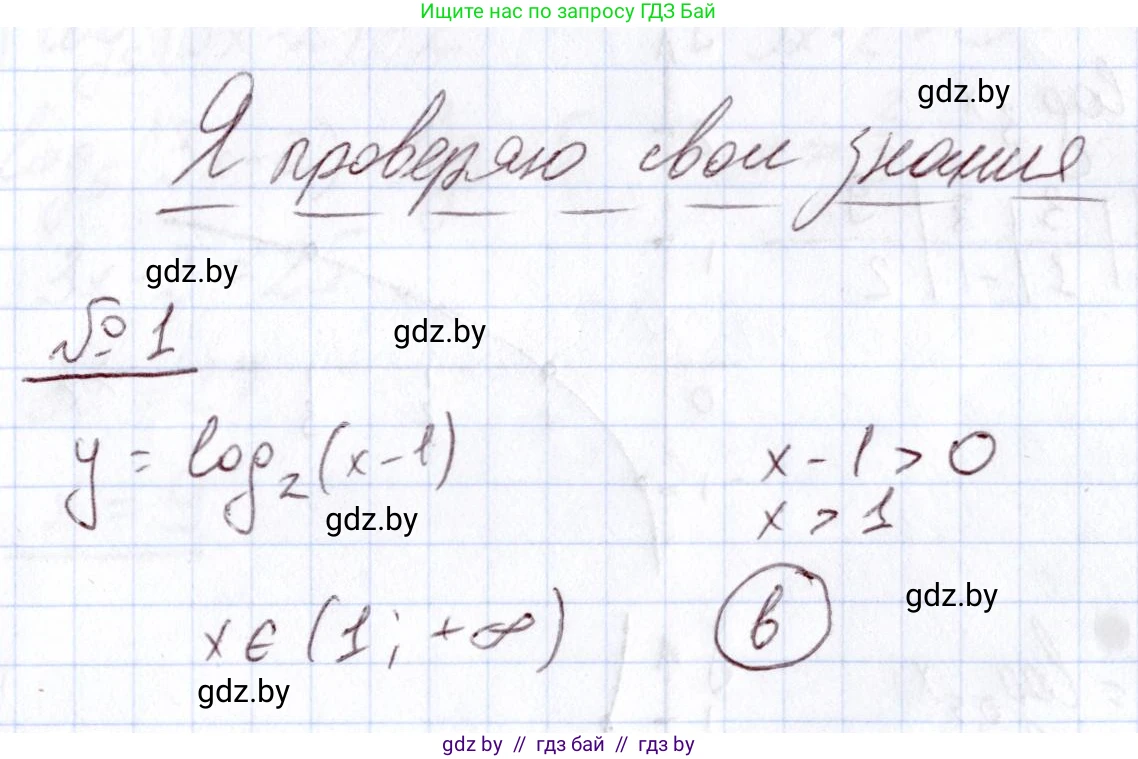 Ищите нас по запросу ГДЗ Бай
gdz.by
Я проверяю свои знания
gdz.by
№ 1
gdz.by
y = log₂(x-1)
x - 1 > 0
gdz.by
x > 1
x ∈ (1; +∞)
в
gdz.by
gdz.by
gdz by // гдз бай // гдз by